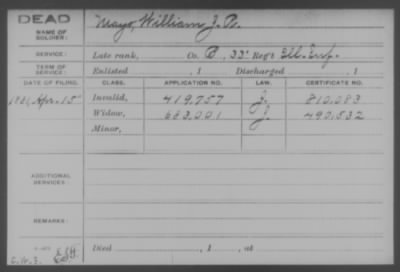 DEAD
NAME OF SOLDIER: Mayo, William J. B.
SERVICE: Late rank, Co. B, 33" Reg't Ill. Inf.
TERM OF SERVICE: Enlisted , 1 Discharged , 1
DATE OF FILING. CLASS. APPLICATION NO. LAW. CERTIFICATE NO.
1881, Apr. 15 Invalid, 419,757 J. 810,283
Widow, 683,001 J. 490,532
Minor,
ADDITIONAL SERVICES:
REMARKS:
Died , 1 , at